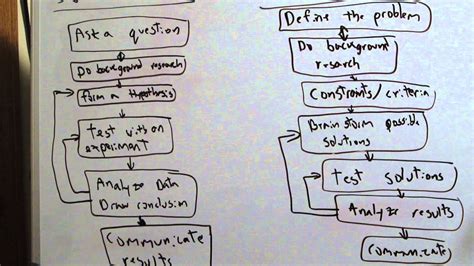 Ask a question
Do background research
form a Hypothesis
test with an
experiment
Analyze Data
Draw conclusion
Communicate
results
Define the problem
Do background
research
Constraints/criteria
Brainstorm possible
solutions
test solutions
Analyze results
Communicate